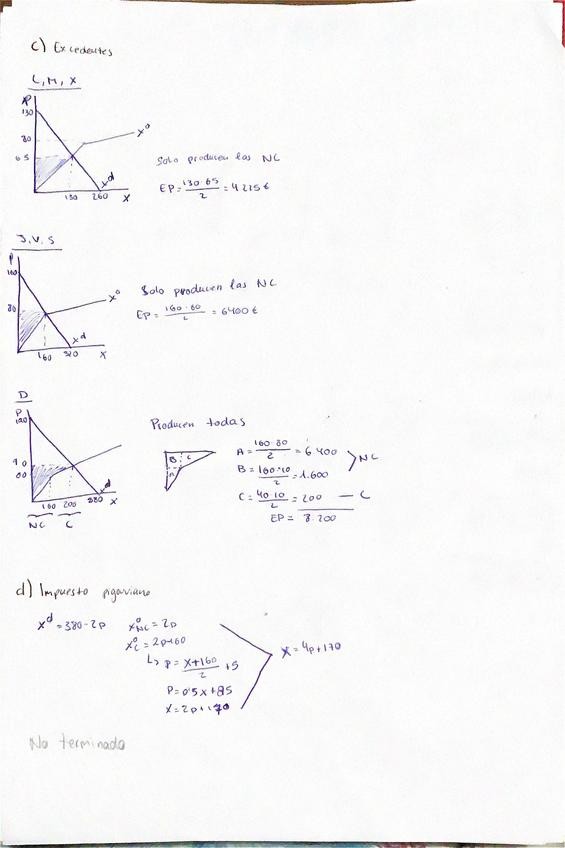 c) Excedentes
L, M, X
P
130
80
65
x°
x^d
130 260 X
Solo producen las NC
EP = 130·65/2 = 4225 €
J, V, S
P
160
80
x°
x^d
160 320 X
Solo producen las NC
EP = 160·80/2 = 6400 €
D
P
190
90
80
x^d
160 200 380 X
NC C
Producen todas
B C
A
A = 160·80/2 = 6400
B = 160·10/2 = 1.600
NC
C = 40·10/2 = 200 — C
EP = 8.200
d) Impuesto pigouviano
x^d = 380-2p x°NC = 2p
x°C = 2p-160
↳ p = x+160/2 + 5
p = 0'5x + 85
x = 2p + 170
x = 4p + 170
No terminado